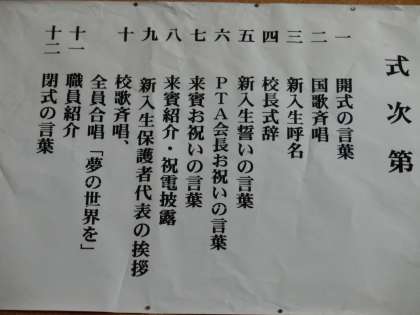 式次第
一 開式の言葉
二 国歌斉唱
三 新入生呼名
四 校長式辞
五 新入生誓いの言葉
六 PTA会長お祝いの言葉
七 来賓お祝いの言葉
八 来賓紹介・祝電披露
九 新入生保護者代表の挨拶
十 校歌斉唱、
全員合唱「夢の世界を」
十一 職員紹介
十二 閉式の言葉